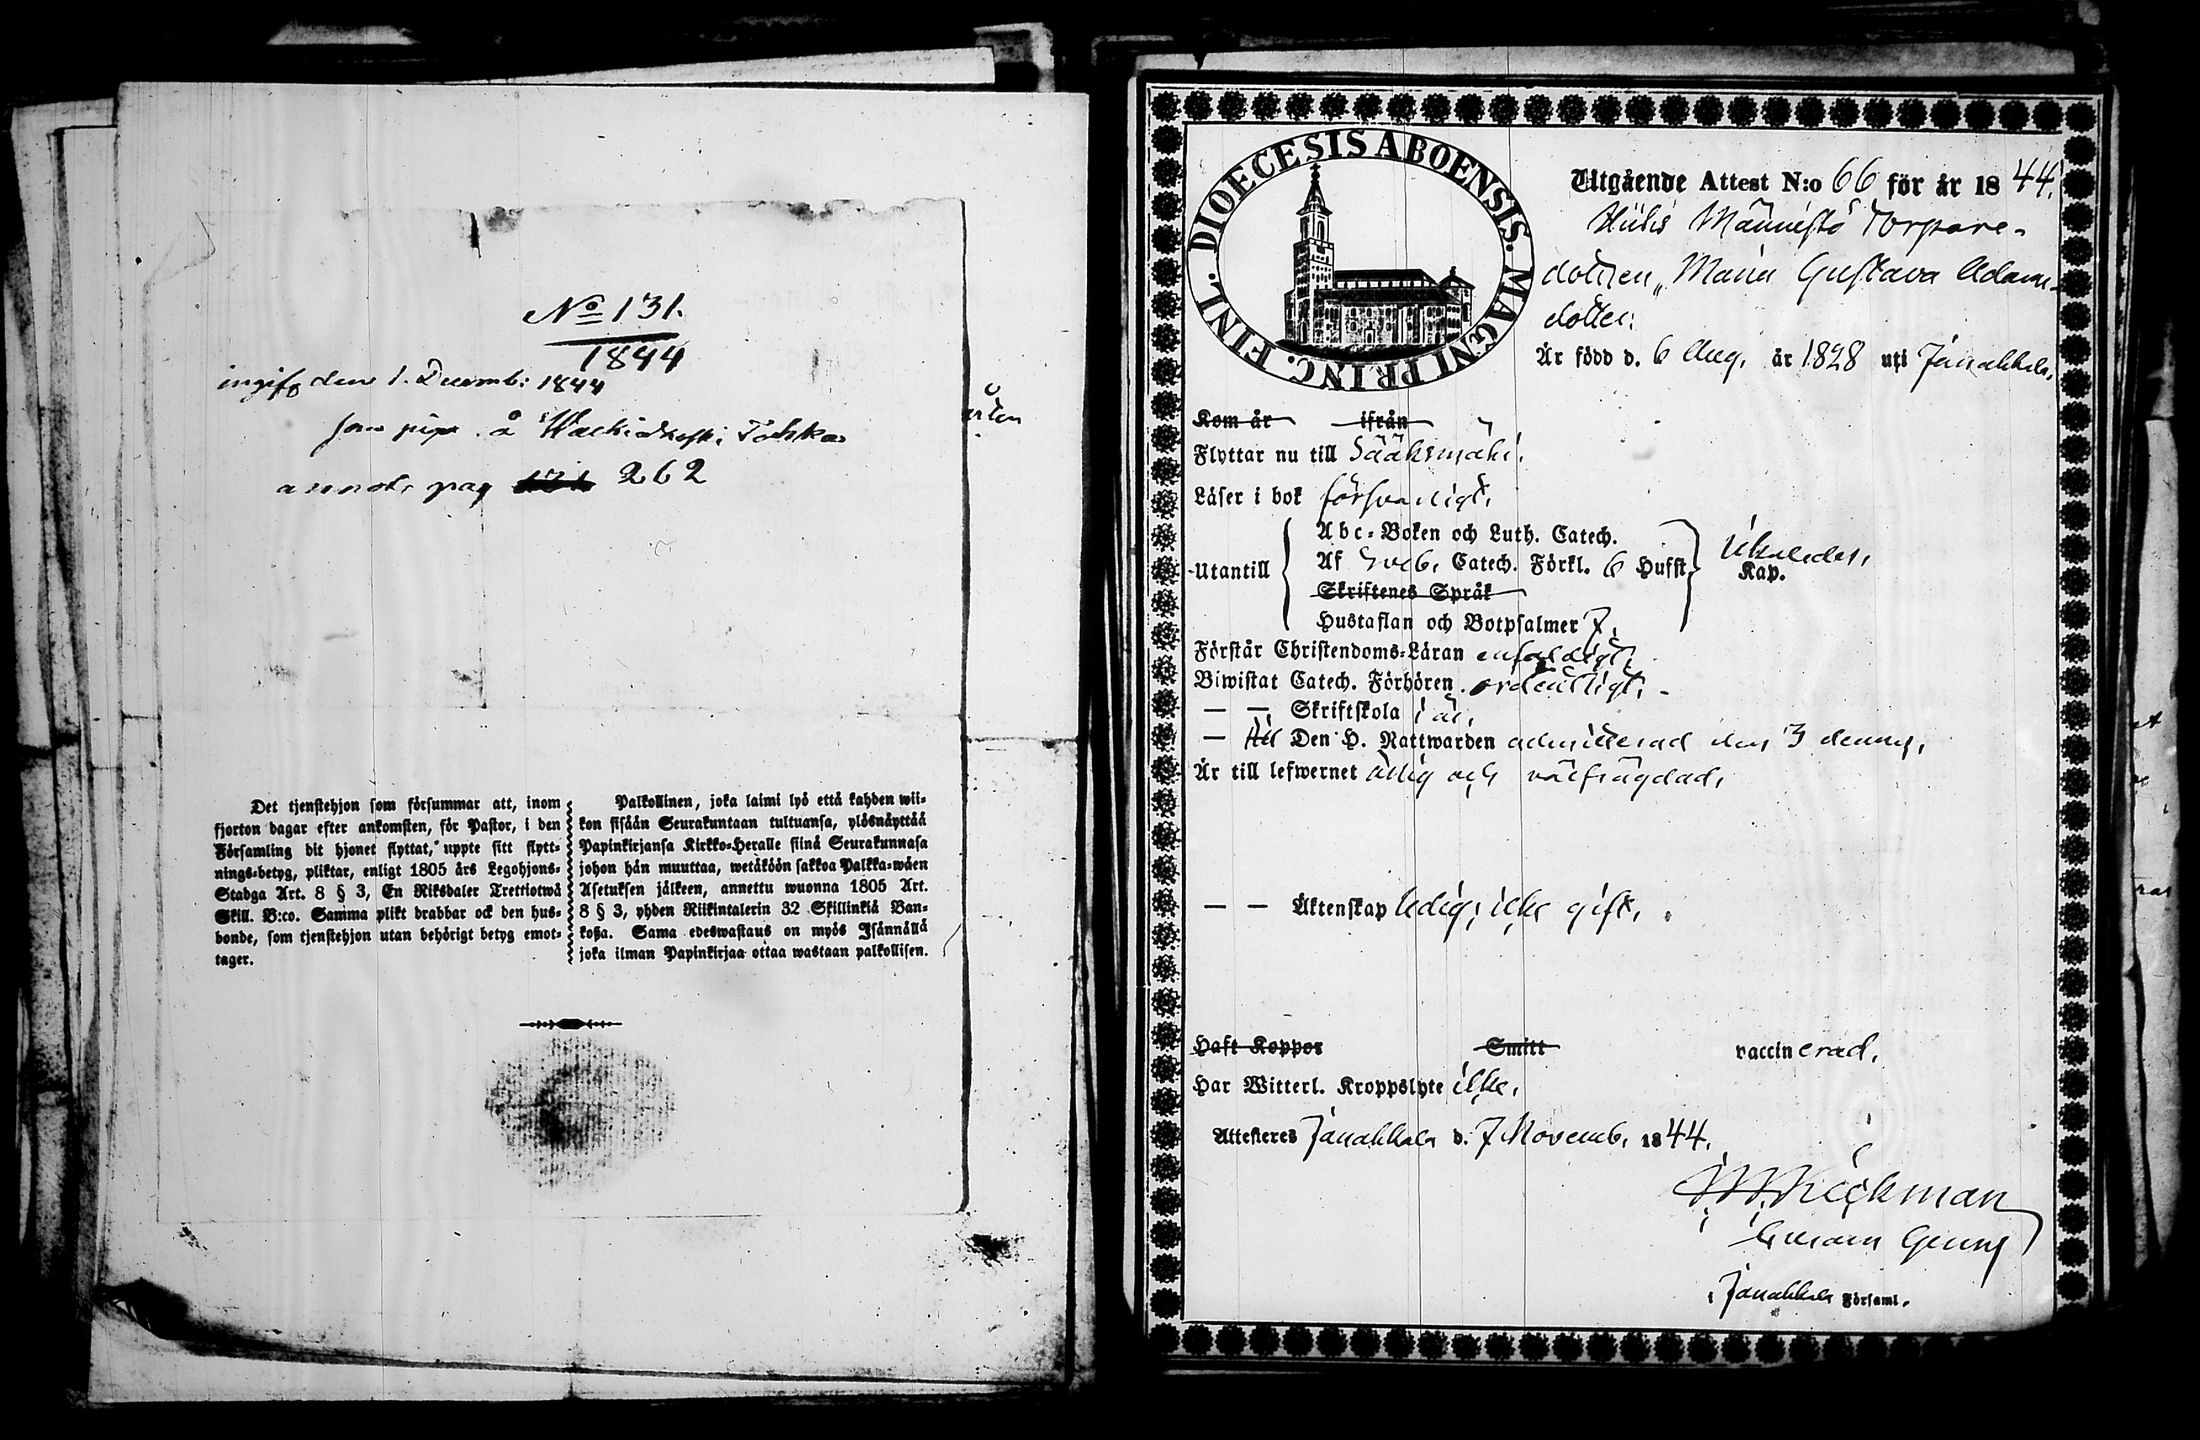 No 131.
1844
ingifv den 1. Decemb: 1844
som piga å Wachiakoski Tocska
annot. pag 262
Det tjenstehjon som försummar att, inom
fjorton dagar efter ankomsten, för Pastor, i den
Församling dit hjonet flyttat, uppte sitt flytt-
nings-betyg, pliktar, enligt 1805 års Legohjons-
Stadga Art. 8 § 3, En Riksdaler Trettiotwå
Skill. B:co. Samma plikt drabbar ock den hus-
bonde, som tjenstehjon utan behörigt betyg emot-
tager.
Palkollinen, joka laimi lyö että kahden wii-
kon sisään Seurakuntaan tultuansa, ylösnäyttää
Papinkirjansa Kirkko-Heralle siinä Seurakunnasa
johon hän muuttaa, wetäköön sakkoa Palkka-wäen
Asetuksen jälkeen, annettu wuonna 1805 Art.
8 § 3, yhden Riikintalerin 32 Skillinkiä Ban-
koßa. Sama edeswastaus on myös Isännällä
joka ilman Papinkirjaa ottaa wastaan palkollisen.
DIOECESIS ABOENSIS. MAGNI PRINC. FINL.
Utgående Attest N:o 66 för år 1844.
Hiibis Männistö Torpare-
dottren, Maria Gustava Adams-
dotter:
Är född d. 6 Aug. år 1828 uti Janakkala.
Kom år ifrån
Flyttar nu till Sääksmäki.
Läser i bok försvarligt.
Utantill
Abc-Boken och Luth. Catech.
Af Sveb. Catech. Förkl. 6 Hufst.
Kap.
Skriftenes Språk
Hustaflan och Botpsalmer 7.
Förstår Christendoms-Läran enfaldigt.
Biwistat Catech. Förhören ordentligt.
— — Skriftskola i år.
— till Den H. Nattwarden admitterad den 3 dennes.
Är till lefwernet ärlig och välfrägdad.
— — Äktenskap ledig, icke gift.
Haft Koppor Smitt vaccinerad.
Har Witterl. Kroppslyte icke.
Attesteres Janakkala d. 7 Novemb. 1844.
i Janakkala Församl.